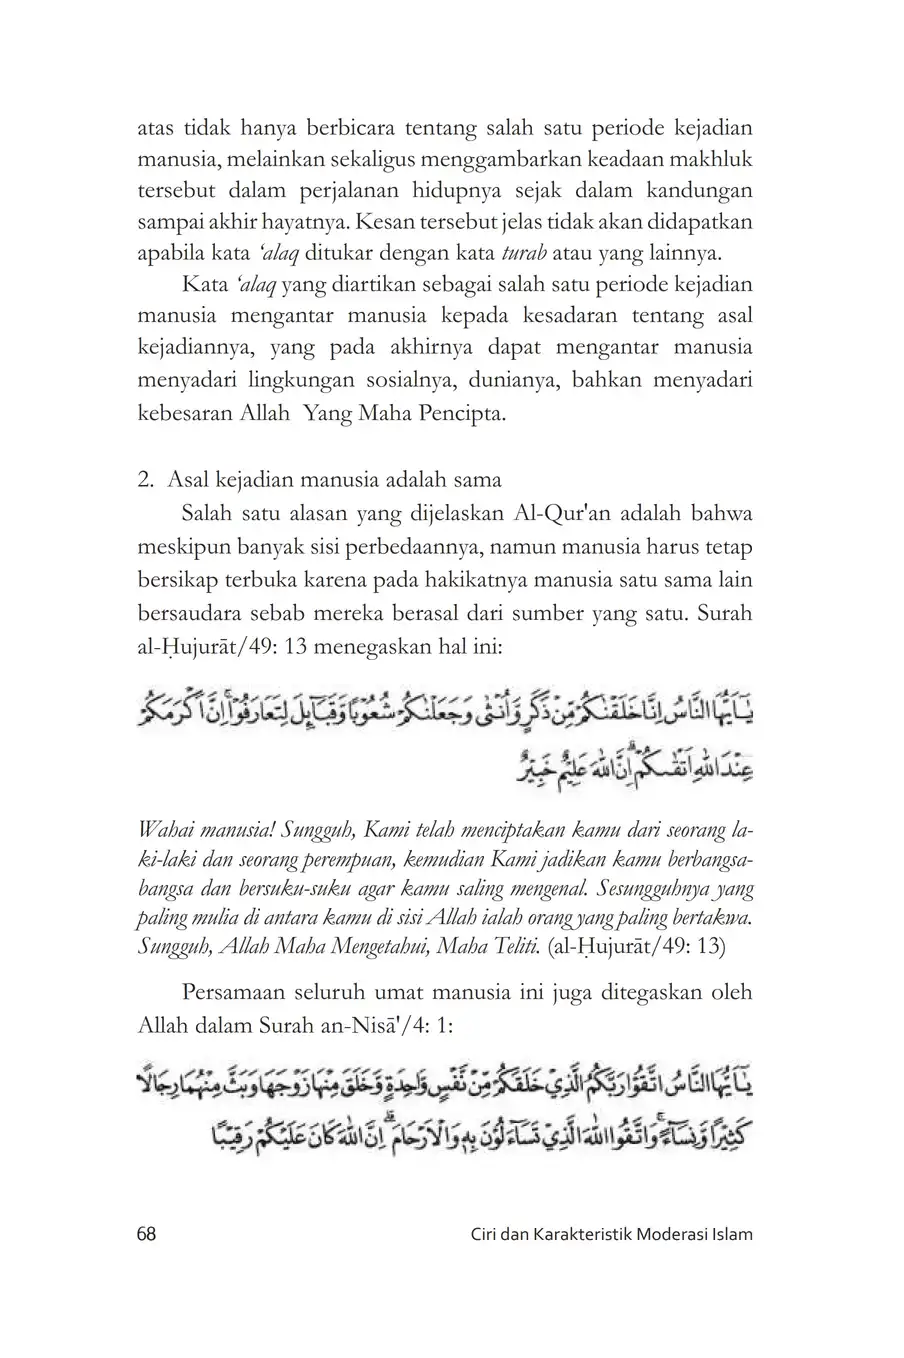 atas tidak hanya berbicara tentang salah satu periode kejadian
manusia, melainkan sekaligus menggambarkan keadaan makhluk
tersebut dalam perjalanan hidupnya sejak dalam kandungan
sampai akhir hayatnya. Kesan tersebut jelas tidak akan didapatkan
apabila kata ‘alaq ditukar dengan kata turab atau yang lainnya.
Kata ‘alaq yang diartikan sebagai salah satu periode kejadian
manusia mengantar manusia kepada kesadaran tentang asal
kejadiannya, yang pada akhirnya dapat mengantar manusia
menyadari lingkungan sosialnya, dunianya, bahkan menyadari
kebesaran Allah Yang Maha Pencipta.
2. Asal kejadian manusia adalah sama
Salah satu alasan yang dijelaskan Al-Qur'an adalah bahwa
meskipun banyak sisi perbedaannya, namun manusia harus tetap
bersikap terbuka karena pada hakikatnya manusia satu sama lain
bersaudara sebab mereka berasal dari sumber yang satu. Surah
al-Ḥujurāt/49: 13 menegaskan hal ini:
يٰٓاَيُّهَا النَّاسُ اِنَّا خَلَقْنٰكُمْ مِّنْ ذَكَرٍ وَّاُنْثٰى وَجَعَلْنٰكُمْ شُعُوْبًا وَّقَبَاۤىِٕلَ لِتَعَارَفُوْا ۚ اِنَّ اَكْرَمَكُمْ
عِنْدَ اللّٰهِ اَتْقٰىكُمْ ۗ اِنَّ اللّٰهَ عَلِيْمٌ خَبِيْرٌ
Wahai manusia! Sungguh, Kami telah menciptakan kamu dari seorang la-
ki-laki dan seorang perempuan, kemudian Kami jadikan kamu berbangsa-
bangsa dan bersuku-suku agar kamu saling mengenal. Sesungguhnya yang
paling mulia di antara kamu di sisi Allah ialah orang yang paling bertakwa.
Sungguh, Allah Maha Mengetahui, Maha Teliti. (al-Ḥujurāt/49: 13)
Persamaan seluruh umat manusia ini juga ditegaskan oleh
Allah dalam Surah an-Nisā'/4: 1:
يٰٓاَيُّهَا النَّاسُ اتَّقُوْا رَبَّكُمُ الَّذِيْ خَلَقَكُمْ مِّنْ نَّفْسٍ وَّاحِدَةٍ وَّخَلَقَ مِنْهَا زَوْجَهَا وَبَثَّ مِنْهُمَا رِجَالًا
كَثِيْرًا وَّنِسَاۤءً ۚ وَاتَّقُوا اللّٰهَ الَّذِيْ تَسَاۤءَلُوْنَ بِهٖ وَالْاَرْحَامَ ۗ اِنَّ اللّٰهَ كَانَ عَلَيْكُمْ رَقِيْبًا
68
Ciri dan Karakteristik Moderasi Islam